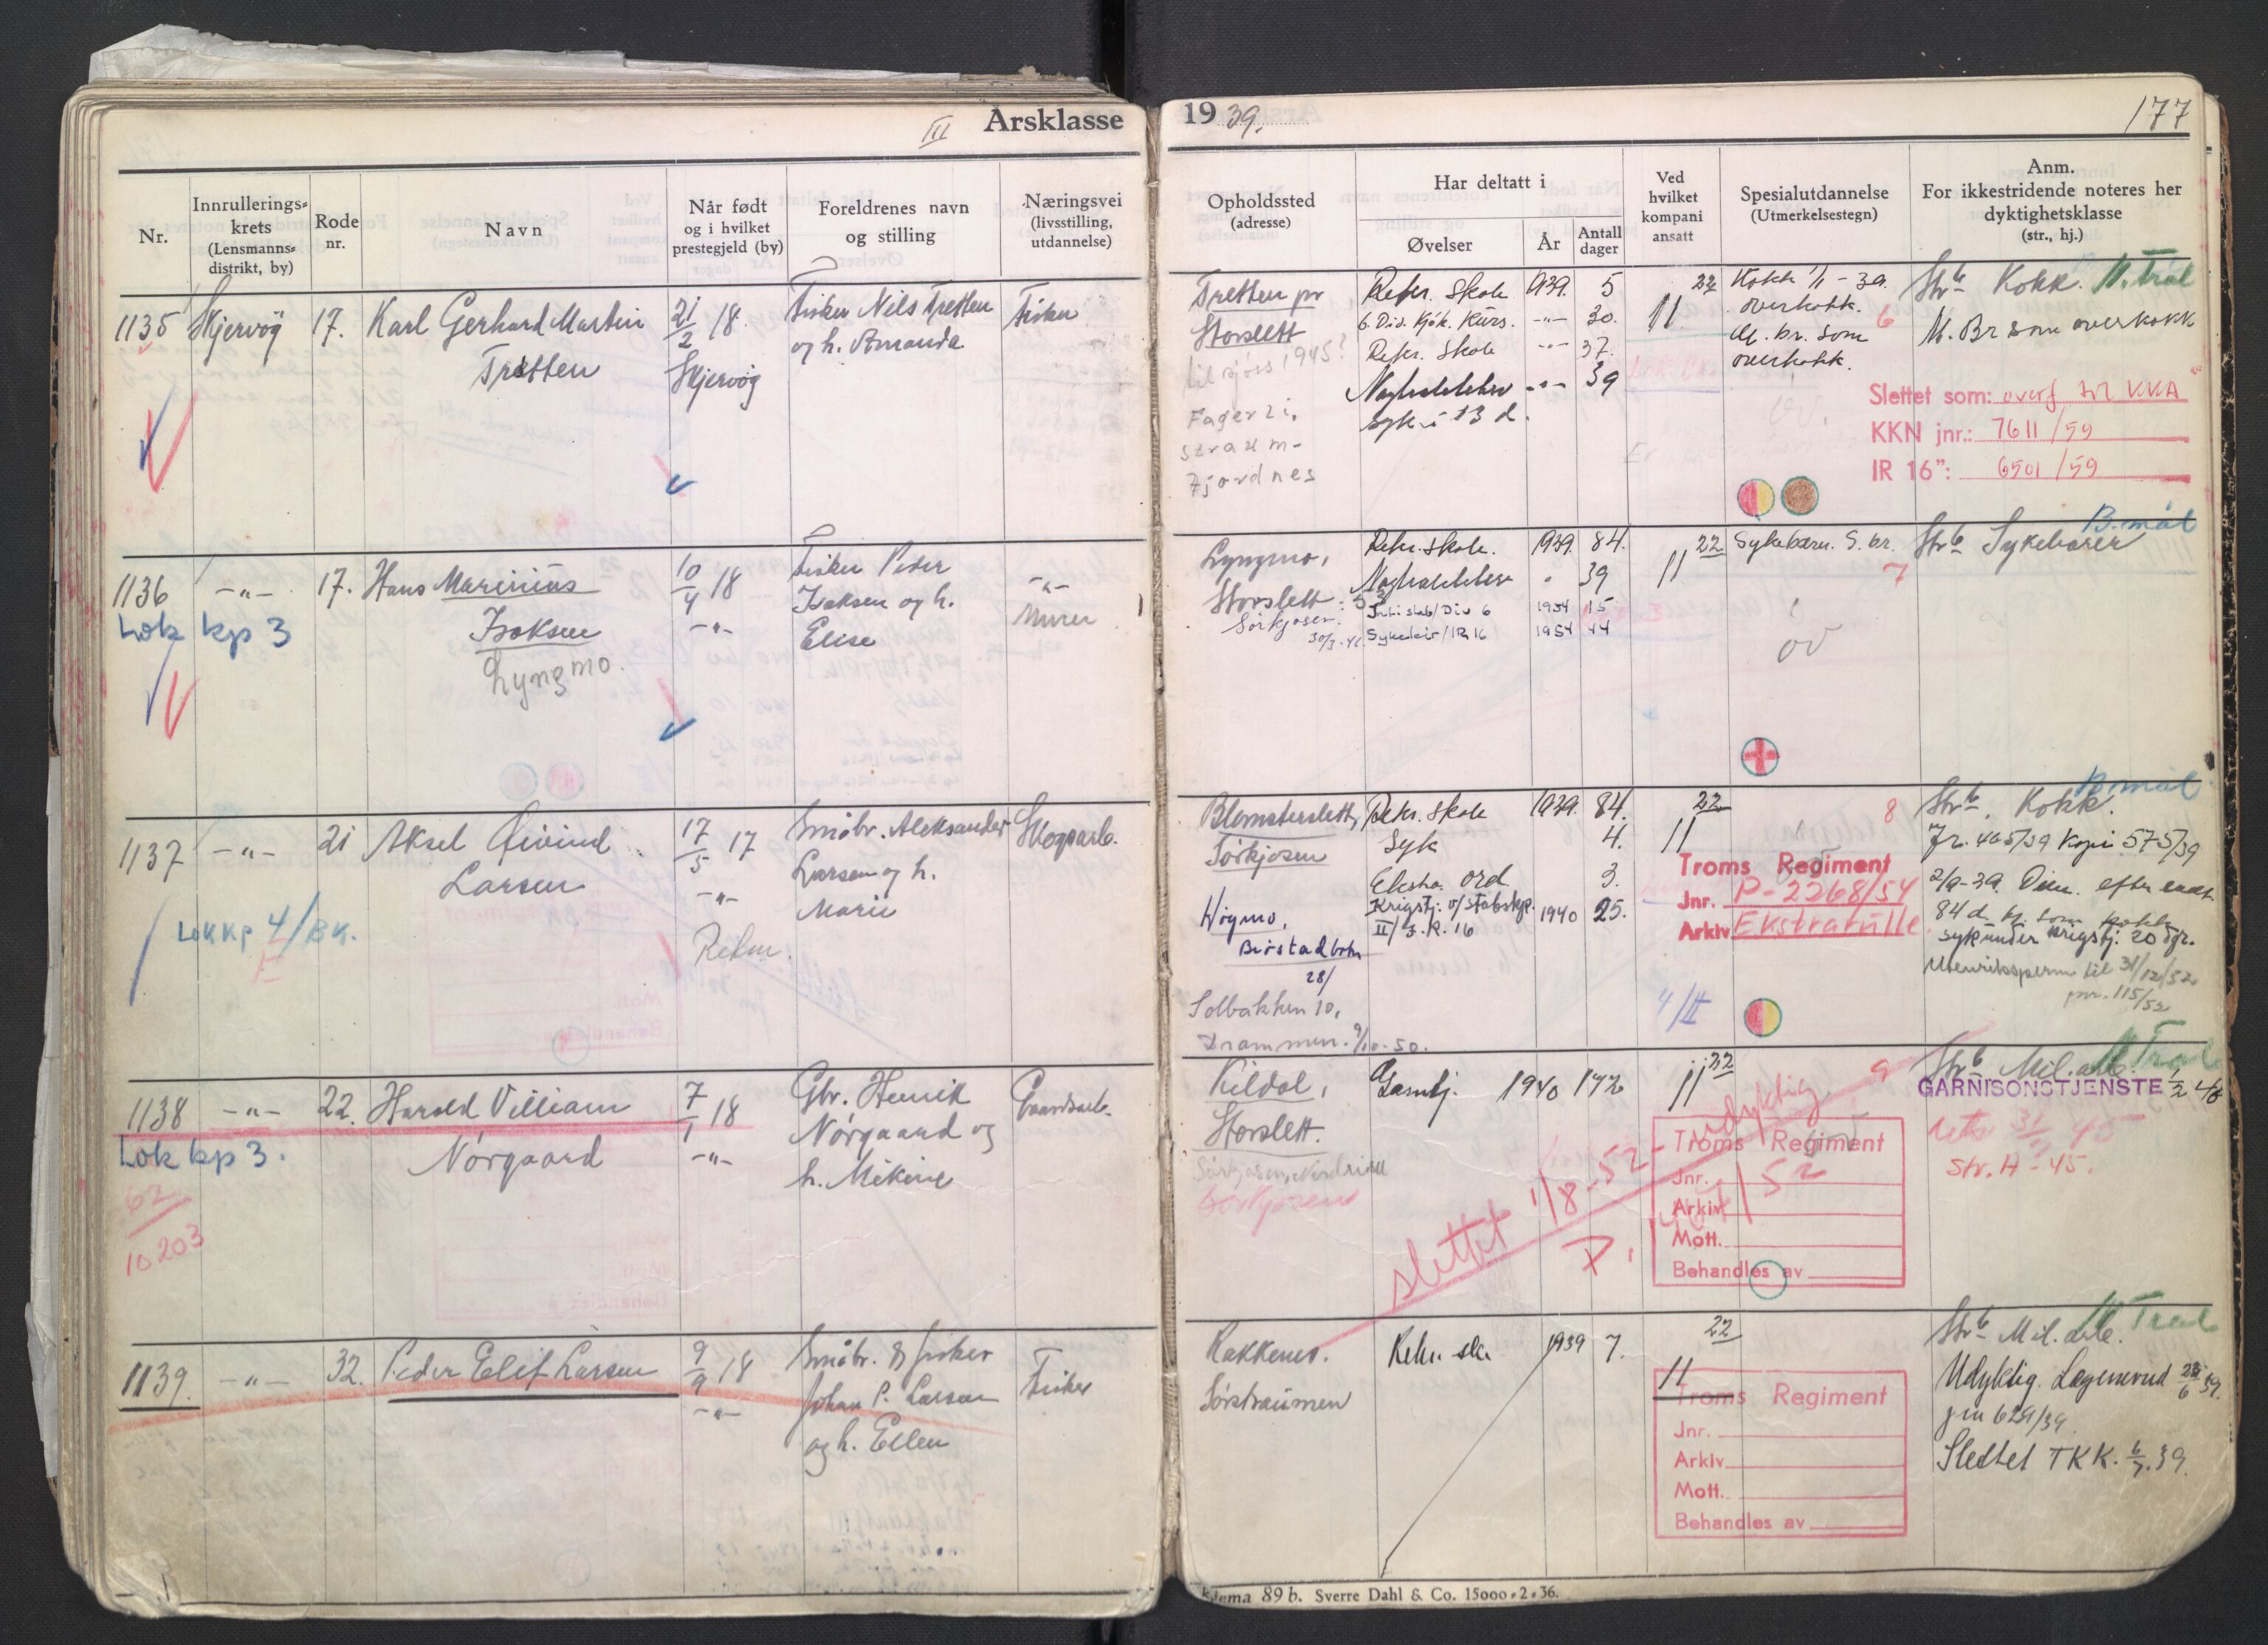 III Årsklasse
1939.
177
Nr.
Innrullerings-
krets
(Lensmanns-
distrikt, by)
Rode
nr.
Navn
Når født
og i hvilket
prestegjeld (by)
Foreldrenes navn
og stilling
Næringsvei
(livsstilling,
utdannelse)
Opholdssted
(adresse)
Har deltatt i
Øvelser
År
Antall
dager
Ved
hvilket
kompani
ansatt
Spesialutdannelse
(Utmerkelsestegn)
Anm.
For ikkestridende noteres her
dyktighetsklasse
(str., hj.)
1135 Skjervøy 17. Karl Gerhard Martin
Tretten
21/2 18.
Skjervøy
Fisker Nils Tretten
og h. Amanda
Fisker
Tretten pr
Storslett
til sjøss 1945?
Fagerli,
straum-
fjordnes
Rekr. Skole 1939. 5
6. Div. Kjøk. Kurs. -"- 30.
Rekr. Skole -"- 37.
-"- 39
syk i 13 d.
22
11
Kokk 1/1 - 39.
overkokk.
M. br. som
overkokk.
6
Str. Kokk.
M. Br som overkokk
Slettet som: overf til KKA
KKN jnr.: 7611/59
IR 16": 6501/59
1136 -"- 17. Hans Marinius
Isaksen
Lyngmo.
Lok kp 3
10/4 18
-"-
Fisker Peder
Isaksen og h.
Elise
-"-
Murer
Lyngmo,
Storslett
Sørkjosen
Rekr. skole. 1939. 84.
39
1954 15
Sykeleir/IR 16 1954 44
22
11
Sykebærer. S. br.
7
øv
B. mål
Str. Sykebærer
1137 -"- 21 Aksel Øivind
Larsen
Lok kp 4/BK.
17/5 17
-"-
Småbr. Aleksander
Larsen og h.
Marie
Skogsarb.
Blomsterslett,
Sørkjosen
Høgmo,
28/
Solbakken 10,
Drammen. 9/10-50.
Rekr. skole 1939. 84.
Syk 4.
Ekstra ord 3.
Krigstj. v/stabskp.
II/I.R. 16 1940 25.
22
11
4/II
8
Troms Regiment
Jnr. P-2268/54
Arkiv Ekstrarulle
B mål
Str. Kokk.
Jr. 465/39 Kopi 575/39
2/9-39. Dim. efter endt
84 d. tj. som kokk
syk under krigstj. 20 dgr.
Utenriksperm til 31/12/52
jnr. 115/52
1138 -"- 22. Harald Villiam
Nørgaard
Lok kp 3.
62
10203
7/1 18
-"-
Gbr. Henrik
Nørgaard og
h. Mikine
Gaardsarb.
Kildal,
Storslett.
Sørkjosen
Garntj. 1940 172
22
11
slettet 1/8-52 - udyktig
9
Troms Regiment
Jnr.
Arkiv
Mott.
Behandles av
Str. Mil. arb.
GARNISONSTJENESTE 1/2 40
Str. A - 45.
1139. -"- 32. Peder Elif Larsen
9/9 18
-"-
Småbr. & fisker
Johan P. Larsen
og h. Ellen
Fisker
Rakkenes.
Sørstraumen
Rekr. sk. 1939 7.
22
11
Troms Regiment
Jnr.
Arkiv
Mott.
Behandles av
Str. Mil. arb.
Udyktig. Lægenevnd 28/6 39.
jnr 629/39
Slettet TKK. 6/7.39.
Skjema 89 b. Sverre Dahl & Co. 15000-2-36.